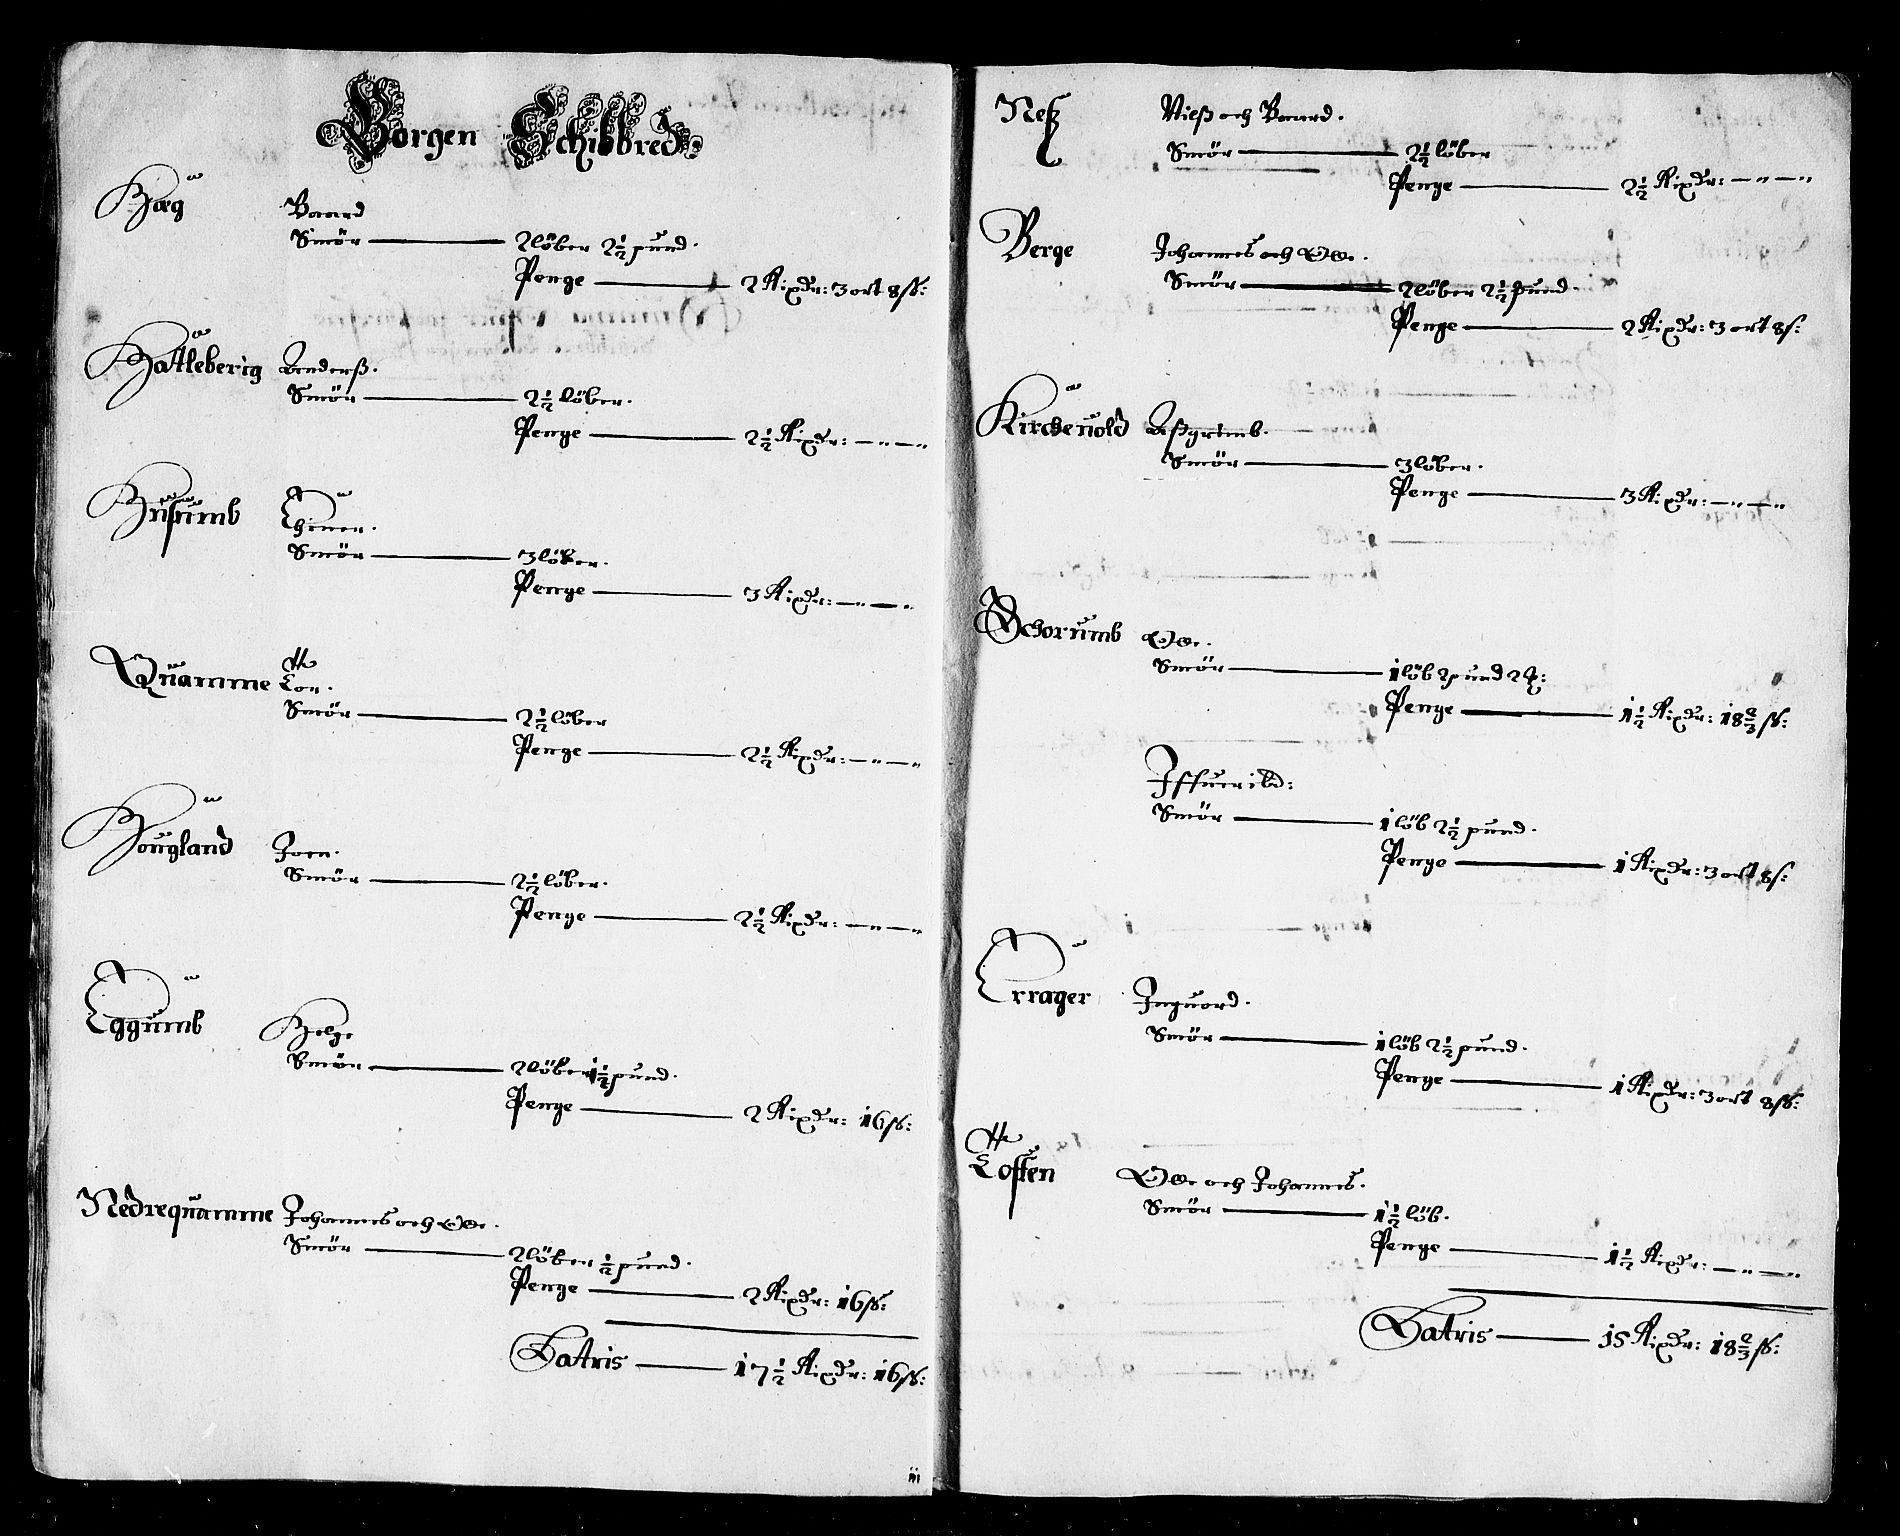 Borgen Schibbred
Hæg
Baard
Smör — 2 löber 2½ pund.
Penge — 2 Rixdr: 3 ort 8 ß:
Hattleberig Anderß.
Smör — 2½ löber.
Penge — 2½ Rixdr: — „ — „
Husumb
Smör — 3 löber.
Penge — 3 Rixdr: — „ — „
Quamme Tor.
Smör — 2½ löber
Penge — 2½ Rixdr: — „ — „
Hougland Joen.
Smör — 2½ löber.
Penge — 2½ Rixdr: — „ — „
Eggumb Helge
Smör — 2 löber 1½ pund.
Penge — 2 Rixdr: 16 ß:
Nedrequamme Johannes och Ole.
Smör — 2 löber ½ pund.
Penge — 2 Rixdr: 16 ß:
Latris — 17½ Rixdr: 16 ß:
Neß Nielß och Baard.
Smör — 2½ löber
Penge — 2½ Rixdr: — „ — „
Berge Johannes och Ole.
Smör — 2 löber 2½ pund.
Penge — 2 Rixdr: 3 ort 8 ß:
Kircheuold Aßgrimb.
Smör — 3 löber.
Penge — 3 Rixdr: — „ — „
Schorumb Ole.
Smör — 1 löb 2 pund 2 ℔:
Penge — 1½ Rixdr: 18⅔ ß:
Iffuerild:
Smör — 1 löb 2½ pund.
Penge — 1 Rixdr: 3 ort 8 ß:
Errager Inguord.
Smör — 1 löb 2½ pund.
Penge — 1 Rixdr: 3 ort 8 ß:
Toften Ole och Johannes.
Smör — 1½ löb.
Penge — 1½ Rixdr: — „ — „
Latris — 15 Rixdr: 18⅔ ß:
iii